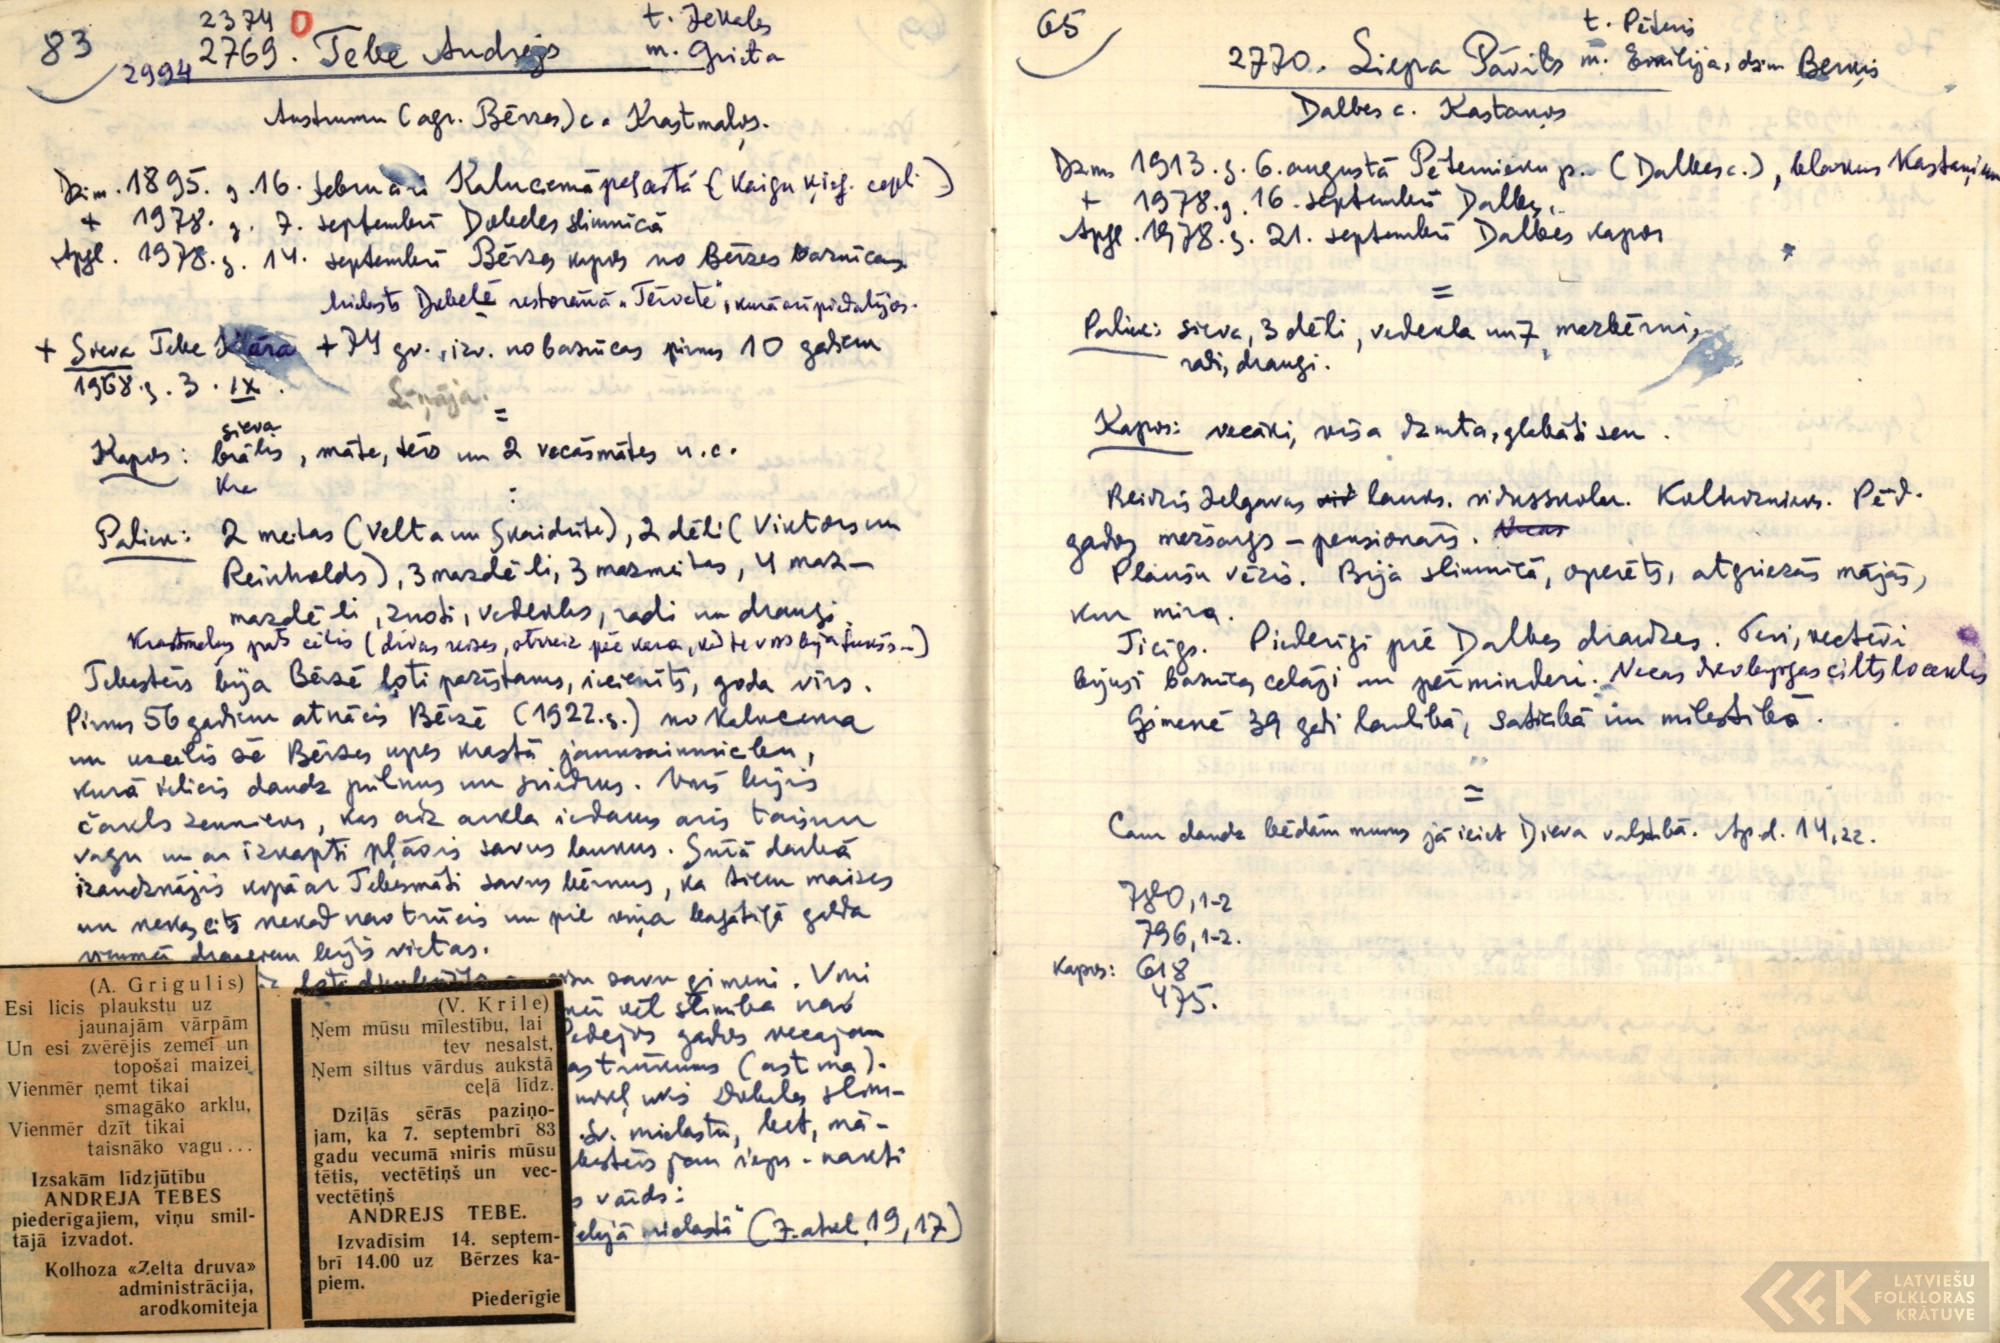 83
2374 0
2769. Tebe Andrejs
2994
t. Jēkabs
m. Grieta
Austrumu (agr. Bērzes) c. Krastmaļos.
Dzim. 1895. g. 16. februārī Kalnciemā pagastā (Kaigu ķieģ. cepl.)
+ 1978. g. 7. septembrī Dobeles slimnīcā
Apgl. 1978. g. 14. septembrī Bērzes kapos no Bērzes baznīcas
Mielasts Dobelē restorānā „Tērvete", kurā arī piedalījos.
+ Sieva Tebe Klāra + 74 gv., izv. no baznīcas pirms 10 gadiem
1968. g. 3. IX.
=
sieva
Kapos: brālis, māte, tēvs un 2 vecāsmātes u.c.
Paliek: 2 meitas (Velta un Skaidrīte), 2 dēli (Viktors un
Reinholds), 3 mazdēli, 3 mazmeitas, 4 maz-
mazdēli, znoti, vedeklas, radi un draugi.
Krastmaļus pats cēlis (divas reizes, otrreiz pēc kara, kad te viss bija
Tebetēvs bija Bērzē ļoti pazīstams, iecienīts, goda vīrs.
Pirms 56 gadiem atnācis Bērzē (1922. g.) no Kalnciema
un uzcēlis še Bērzes upes krastā jaunsaimniecību,
kurā ielicis daudz pūliņus un sviedrus. Viņš bijis
čakls zemnieks, kas aiz arkla iedams aris taisnu
vagu un ar izkapti pļāvis savus laukus. Grūtā darbā
izaudzinājis kopā ar Tebemāti savus bērnus, ka tiem maizes
un nekas cits nekad nav trūcis un pie viņa bagātīgā galda
vienmēr draugiem bijis vietas.
savu ģimeni. Viņi
vēl slimība nav
Pēdējos gados vecajam
(astma).
Dobeles slim-
Sv. mielastu, bet, nā-
nakti
vārds:
mielastā" (7. atkl. 19, 17)
(A. Grigulis)
Esi licis plaukstu uz
jaunajām vārpām
Un esi zvērējis zemei un
topošai maizei
Vienmēr ņemt tikai
smagāko arklu,
Vienmēr dzīt tikai
taisnāko vagu...
Izsakām līdzjūtību
ANDREJA TEBES
piederīgajiem, viņu smil-
tājā izvadot.
Kolhoza «Zelta druva»
administrācija,
arodkomiteja
(V. Krile)
Ņem mūsu mīlestību, lai
tev nesalst,
Ņem siltus vārdus aukstā
ceļā līdz.
Dziļās sērās paziņo-
jam, ka 7. septembrī 83
gadu vecumā miris mūsu
tētis, vectētiņš un vec-
vectētiņš
ANDREJS TEBE.
Izvadīsim 14. septem-
brī 14.00 uz Bērzes ka-
piem.
Piederīgie
65
2770. Liepa Pāvils
t. Pēteris
m. Emīlija, dzim Berķis
Dalbes c. Kastaņos
Dzim. 1913. g. 6. augustā Pēternieku p. (Dalbes c.), blakus Kastaņiem
+ 1978. g. 16. septembrī Dalbē.
Apgl. 1978. g. 21. septembrī Dalbes kapos
=
Paliek: sieva, 3 dēli, vedekla un 7 mazbērni,
radi, draugi.
Kapos: vecāki, viņa dzimta, glabāti sen.
Beidzis Jelgavas lauks. vidusskolu. Kolhoznieks. Pēd.
gados mežsargs – pensionārs.
Plaušu vēzis. Bija slimnīcā, operēts, atgriezās mājās,
kur mira.
Ticīgs. Piederīgi pie Dalbes draudzes. Tēvi, vectēvi
bijuši baznīcas cēlāji un pērminderi. Vecas ciltsloceklis
Ģimenē 39 gadi laulībā, saticībā un mīlestībā.
=
Caur daudz bēdām mums jāieiet Dieva valstībā. Ap. d. 14,22.
780, 1-2
796, 1-2.
Kapos: 618
475.
LATVIEŠU
FOLKLORAS
KRĀTUVE